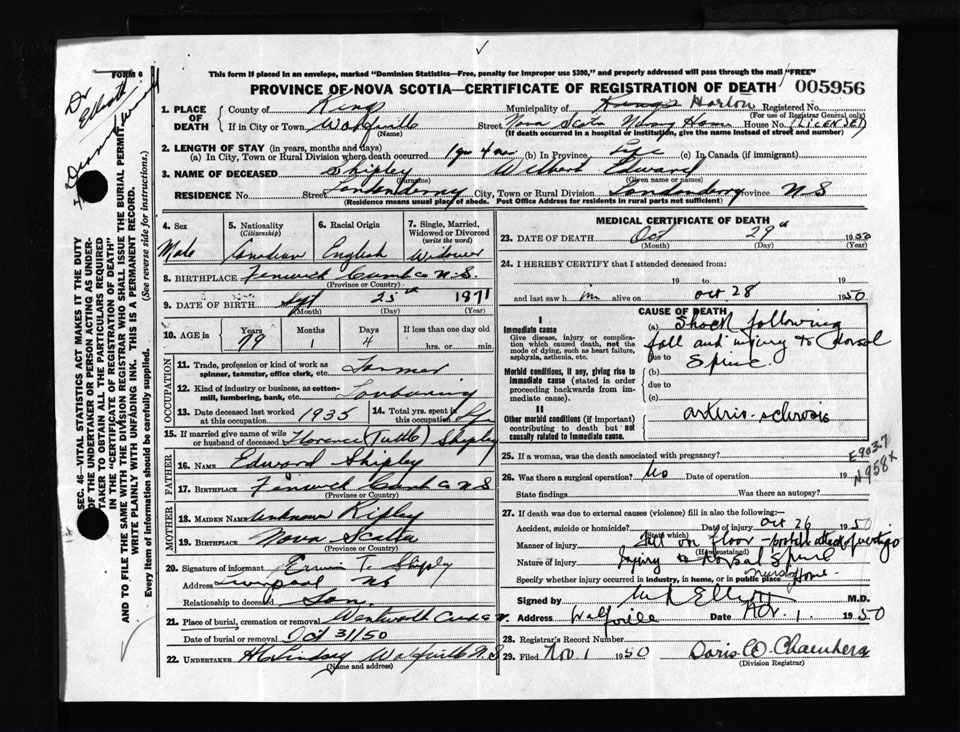 FORM 6
This form if placed in an envelope, marked "Dominion Statistics—Free, penalty for improper use $300," and properly addressed will pass through the mail "FREE"
PROVINCE OF NOVA SCOTIA—CERTIFICATE OF REGISTRATION OF DEATH 005956
1. PLACE OF DEATH County of Kings Municipality of Kings Horton Registered No.
(For use of Registrar General only)
If in City or Town Wolfville Street Nova Scotia Nursing Home House No. (LICENSED)
(Name) (If death occurred in a hospital or institution, give the name instead of street and number)
2. LENGTH OF STAY (in years, months and days)
(a) In City, Town or Rural Division where death occurred 1 yr 4 mos (b) In Province Life (c) In Canada (if immigrant)
3. NAME OF DECEASED Shipley Welbert Edward
(Surname) (Given name or names)
RESIDENCE No. Street Londonderry City, Town or Rural Division Londonderry Province N S
(Residence means usual place of abode. Post Office Address for residents in rural parts not sufficient)
4. Sex
5. Nationality (Citizenship)
6. Racial Origin
7. Single, Married, Widowed or Divorced (write the word)
Male Canadian English Widower
8. BIRTHPLACE Fenwick Cumb Co N.S.
(Province or Country)
9. DATE OF BIRTH Sept 25th 1871
(Month) (Day) (Year)
10. AGE in Years Months Days If less than one day
79 1 4 hrs. or min.
OCCUPATION
11. Trade, profession or kind of work as spinner, teamster, office clerk, etc. Farmer
12. Kind of industry or business, as cotton-mill, lumbering, bank, etc.
13. Date deceased last worked at this occupation 1935 14. Total yrs. spent in this occupation Life
15. If married give name of wife or husband of deceased Florence (Tuttle) Shipley
FATHER
16. NAME Edward Shipley
17. BIRTHPLACE Fenwick Cumb Co N S
(Province or Country)
MOTHER
18. MAIDEN NAME unknown Ripley
19. BIRTHPLACE Nova Scotia
(Province or Country)
20. Signature of informant T. Shipley
Address Liverpool NS
Relationship to deceased Son
21. Place of burial, cremation or removal Wentworth Cumb Co N.
Date of burial or removal Oct 31/50
22. UNDERTAKER H C Lindsay Wolfville N.S
MEDICAL CERTIFICATE OF DEATH
23. DATE OF DEATH Oct 29th 1950
(Month) (Day) (Year)
24. I HEREBY CERTIFY that I attended deceased from:
19 to 19
and last saw him alive on Oct 28 1950
CAUSE OF DEATH
I
Immediate cause
Give disease, injury or complication which caused death, not the mode of dying, such as heart failure, asphyxia, asthenia, etc.
(a) Shock following
fall and injury to dorsal
due to Spine
Morbid conditions, if any, giving rise to immediate cause (stated in order proceeding backwards from immediate cause).
(b)
due to
(c)
II
Other morbid conditions (if important) contributing to death but not causally related to immediate cause.
arterio-sclerosis
25. If a woman, was the death associated with pregnancy?
E9037
N958X
26. Was there a surgical operation? No Date of operation 19
State findings Was there an autopsy?
27. If death was due to external causes (violence) fill in also the following:
Accident, suicide or homicide? Date of injury Oct 26 1950
(State which)
Manner of injury fall on floor - probable attack of vertigo
(How sustained)
Nature of injury Injury to dorsal Spine
Specify whether injury occurred in industry, in home, or in public place Nursing Home
Signed by M.D.
Address Wolfville Date Nov. 1. 1950
28. Registrar's Record Number
29. Filed Nov 1 1950
(Division Registrar)
SEC. 46—VITAL STATISTICS ACT MAKES IT THE DUTY OF THE UNDERTAKER OR PERSON ACTING AS UNDERTAKER TO OBTAIN ALL THE PARTICULARS REQUIRED IN THE "CERTIFICATE OF REGISTRATION OF DEATH" AND TO FILE THE SAME WITH THE DIVISION REGISTRAR WHO SHALL ISSUE THE BURIAL PERMIT.
WRITE PLAINLY WITH UNFADING INK. THIS IS A PERMANENT RECORD.
Every item of information should be carefully supplied. (See reverse side for instructions.)
Dr Elliott